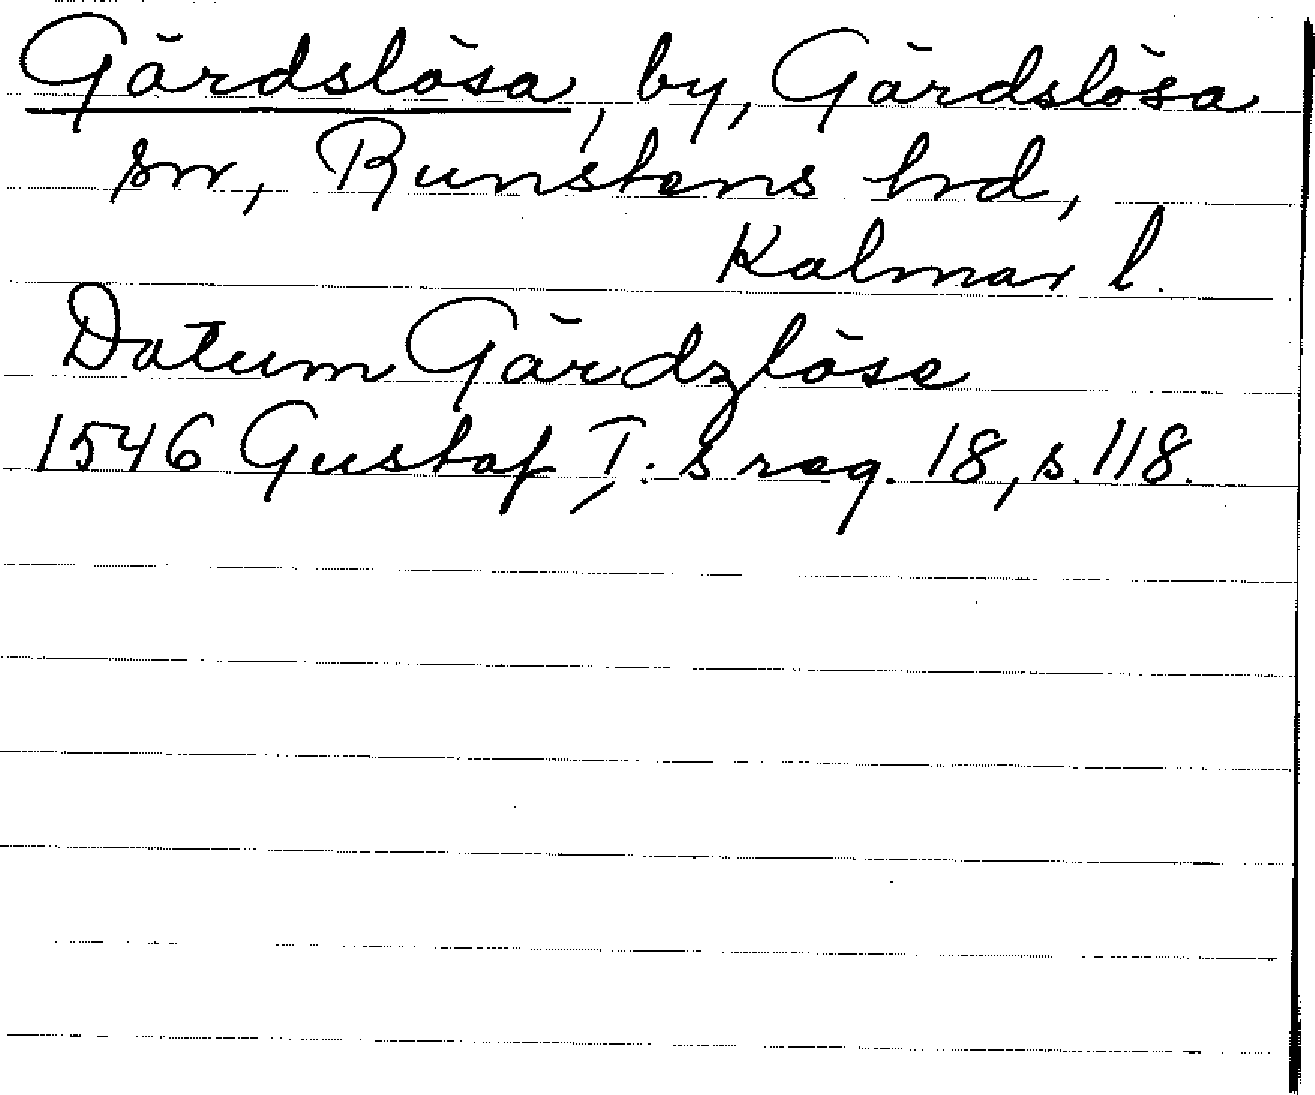 Gärdslösa, by, Gärdslösa
sn, Runstens hrd,
Kalmar l.
Datum Gärdzlöse
1546 Gustaf I:s reg. 18, s. 118.